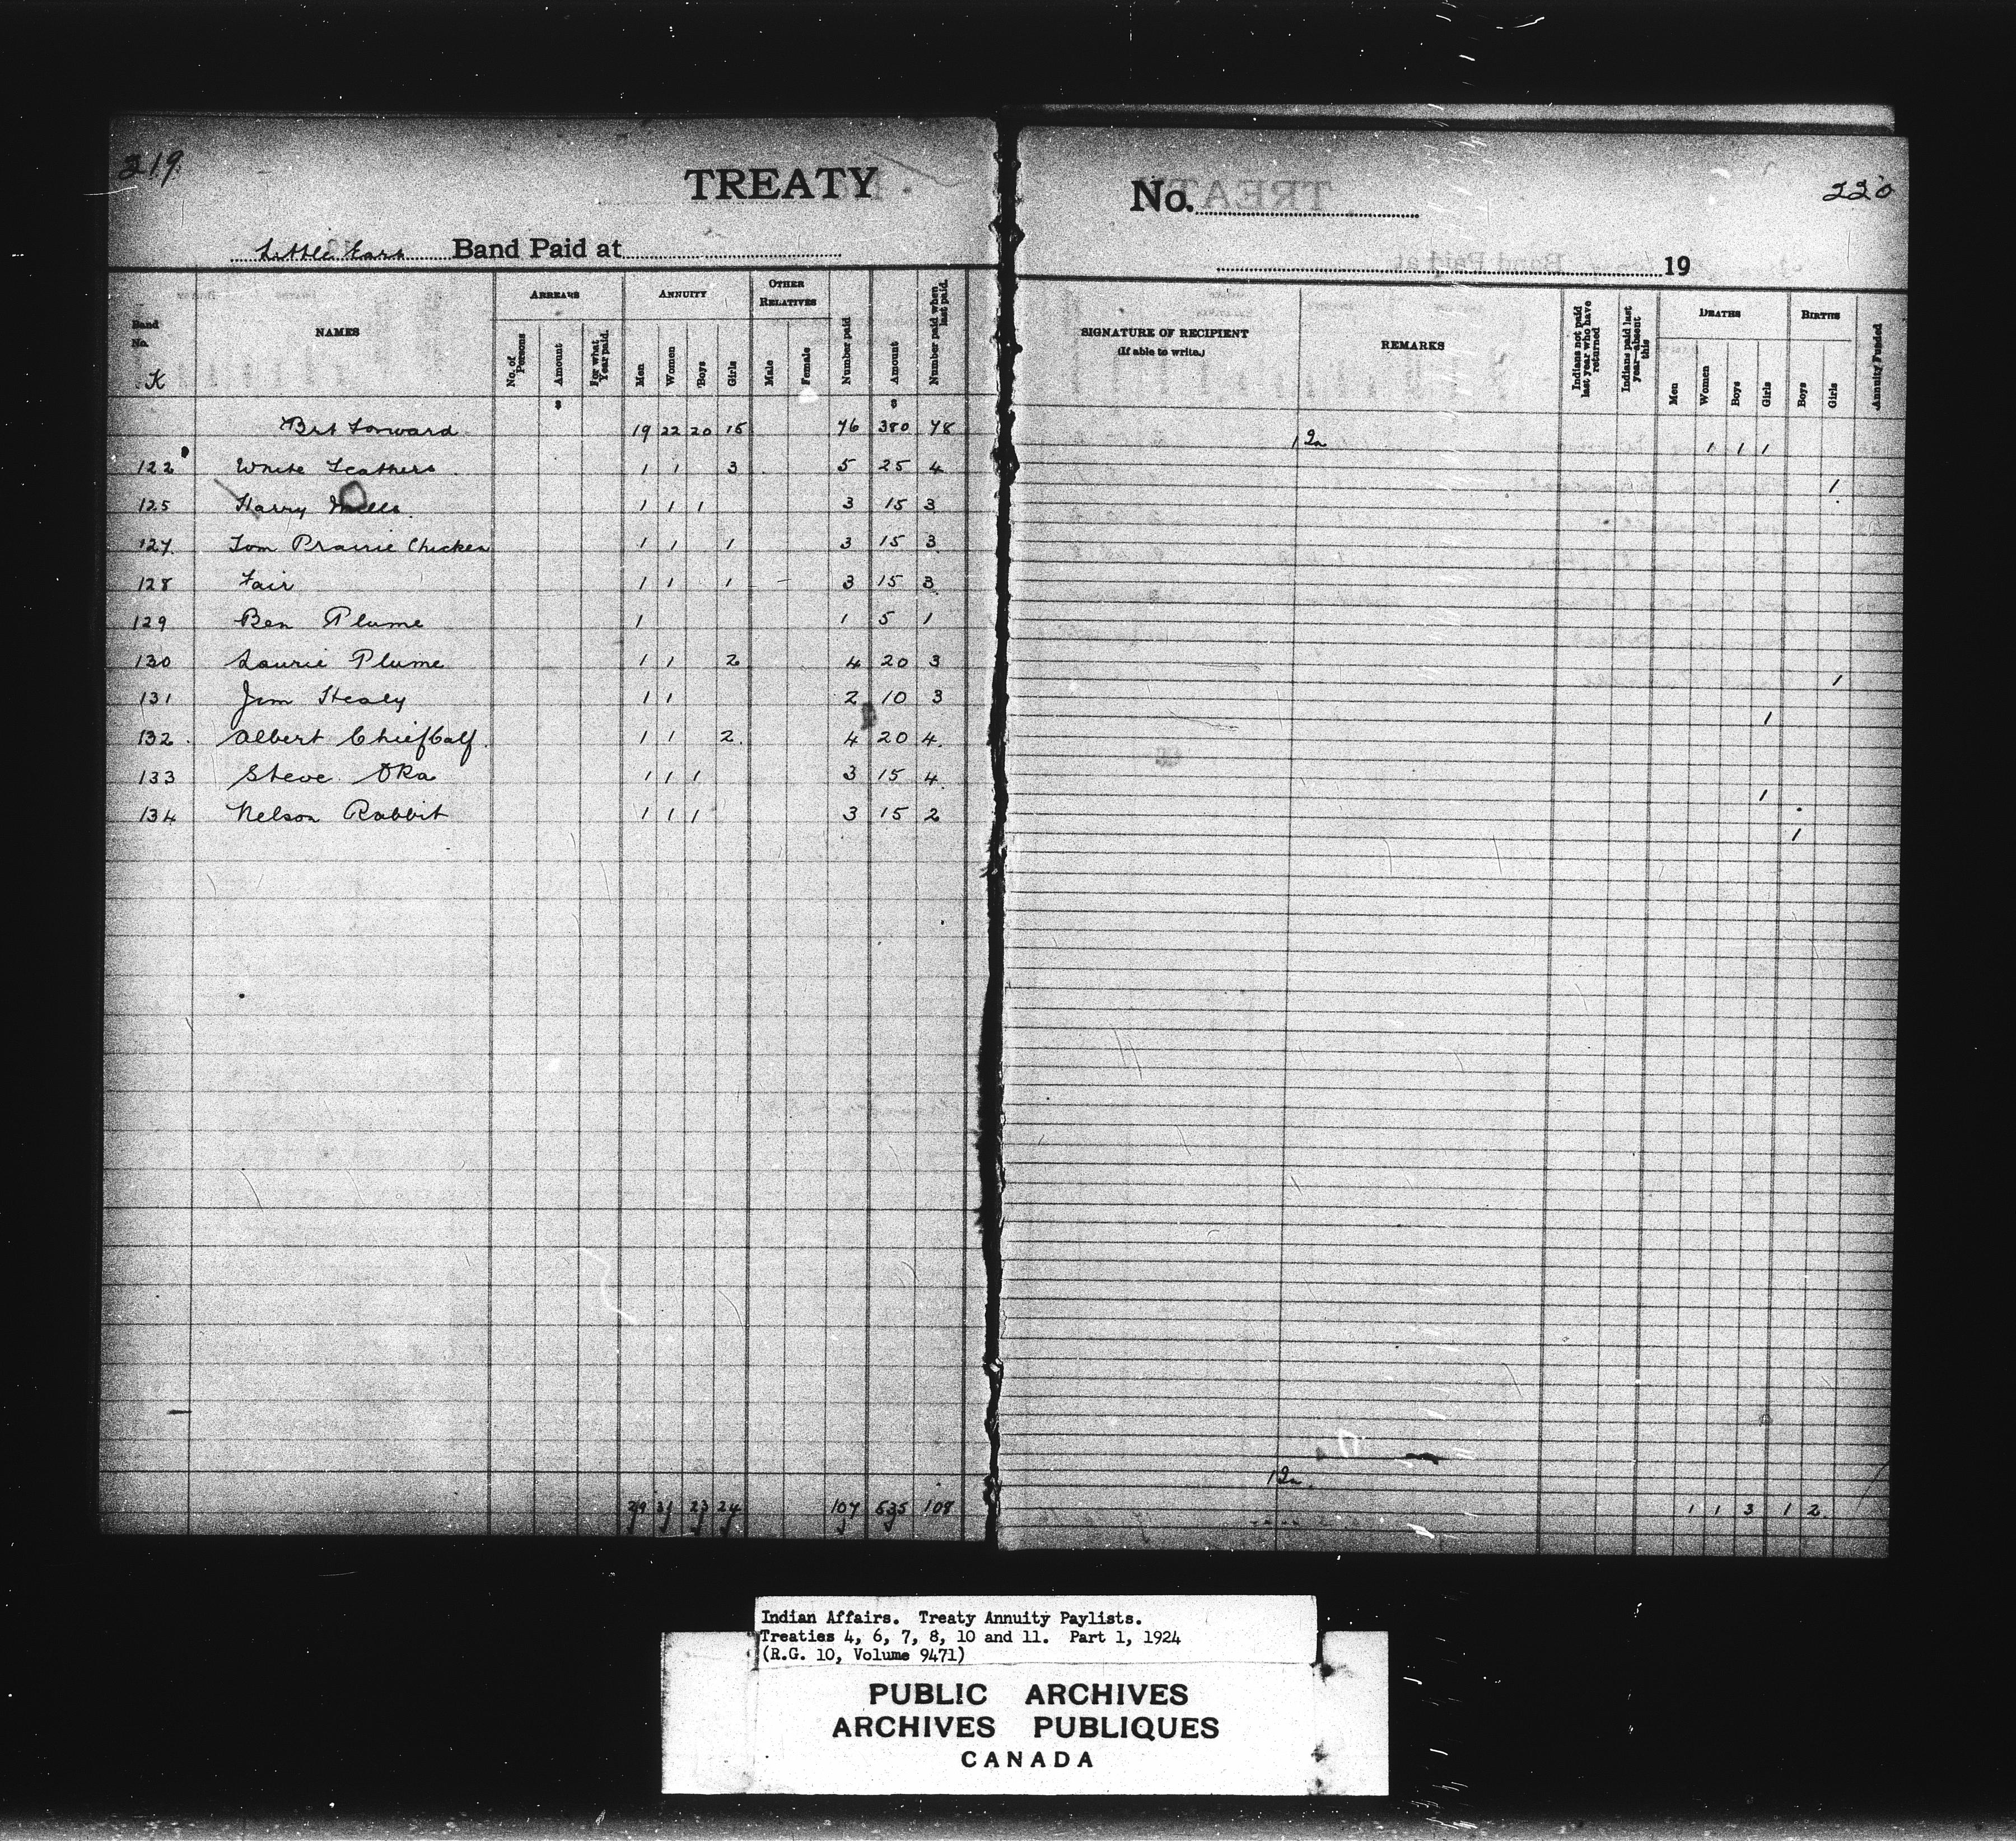 219.
TREATY
No.
220
Little Ears Band Paid at
19
Band No.
K
NAMES
ARREARS
No. of Persons
Amount
For what Year paid.
ANNUITY
Men
Women
Boys
Girls
OTHER RELATIVES
Male
Female
Number paid
Amount
Number paid when last paid.
SIGNATURE OF RECIPIENT
(If able to write.)
REMARKS
Indians not paid last year who have returned
Indians paid last year—absent this
DEATHS
Men
Women
Boys
Girls
BIRTHS
Boys
Girls
Annuity Funded
$ $
Brt Forward 19 22 20 15 76 380 78 1 1 1
122 White Feathers 1 1 3 5 25 4 1
125 Harry Mills 1 1 1 3 15 3
127 Tom Prairie Chicken 1 1 1 3 15 3
128 Fair 1 1 1 3 15 3
129 Ben Plume 1 1 5 1
130 Laurie Plume 1 1 2 4 20 3 1
131 Jim Healy 1 1 2 10 3 1
132 Albert Chief Calf 1 1 2 4 20 4
133 Steve Oka 1 1 1 3 15 4 1
134 Nelson Rabbit 1 1 1 3 15 2 1
29 31 23 24 107 535 108 1 1 3 1 2
Indian Affairs. Treaty Annuity Paylists.
Treaties 4, 6, 7, 8, 10 and 11. Part 1, 1924
(R.G. 10, Volume 9471)
PUBLIC ARCHIVES
ARCHIVES PUBLIQUES
CANADA